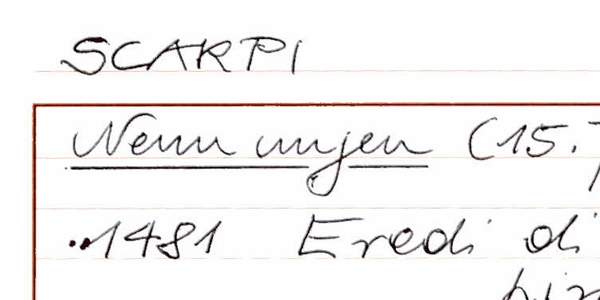 SCARPI
Nennungen (15.
1481 Eredi di